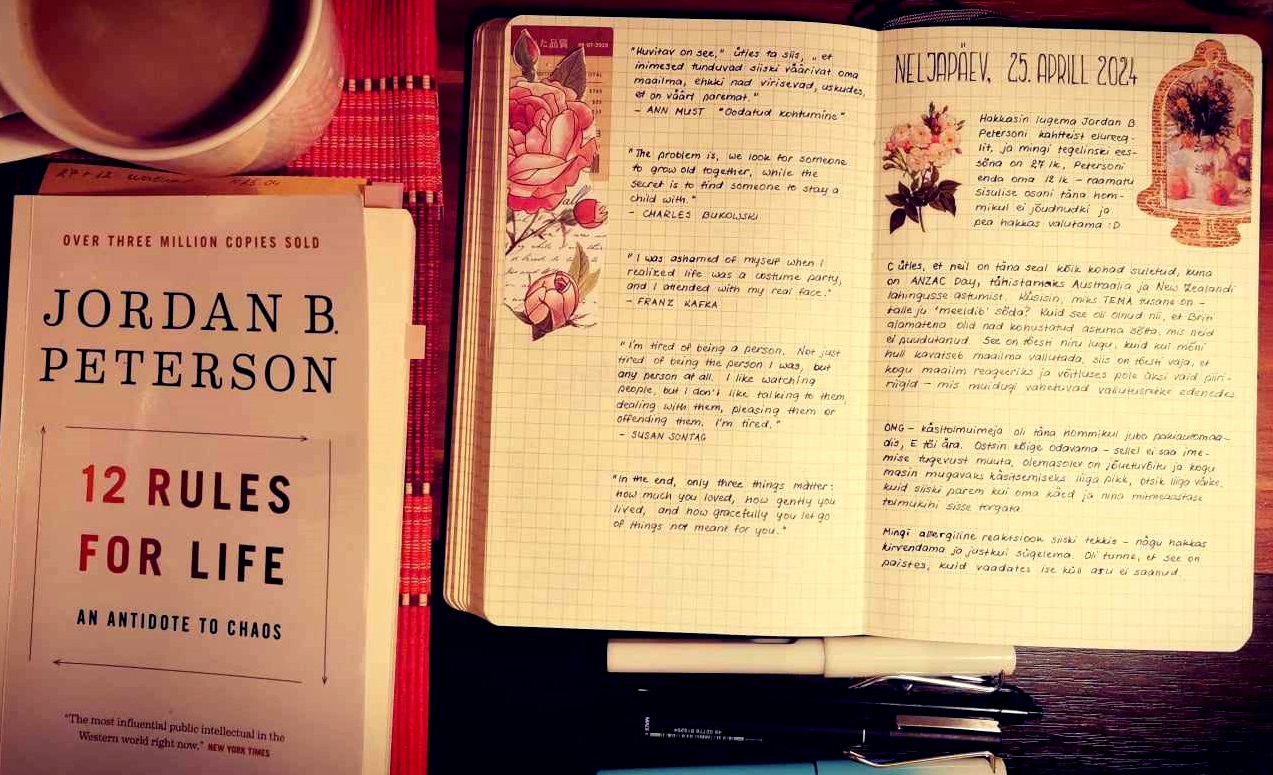 27 + 12
OVER THREE MILLION COPIES SOLD
JORDAN B.
PETERSON
12 RULES
FOR LIFE
AN ANTIDOTE TO CHAOS
"The most influential public intellectual in the
Western world right now." NEW YORK TIMES
た品質
"Huvitav on see," ütles ta siis, „et
inimesed tunduvad siiski väärivat oma
maailma, ehkki nad virisevad, uskudes,
et on väärt paremat."
- ANN MUST "Oodatud kohtumine"
"The problem is, we look for someone
to grow old together, while the
secret is to find someone to stay a
child with."
- CHARLES BUKOWSKI
"I was ashamed of myself when I
realized life was a costume party,
and I attended with my real face."
- FRANZ KAFKA
"I'm tired of being a person. Not just
tired of being the person I was, but
any person at all. I like watching
people, but I don't like talking to them,
dealing with them, pleasing them or
offending them. I'm tired."
- SUSAN SONTAG
"In the end, only three things matter:
how much you loved, how gently you
lived, and how gracefully you let go
of things not meant for you."
NELJAPÄEV, 25. APRILL 2024
Hakkasin lugema Jordan B
Petersoni kahtteist elureeg-
lit, ja mingi tegelinski ees-
sõna on 27 lk, Petersoni
enda oma 12 lk - raamatu
sisulise osani täna hom-
mikul ei jõudnudki ja
pea hakkas valutama :D
C ütles, et neil on täna seal kõik kohad suletud, kuna
on ANZAC Day, tähistamaks Austraalia ja New Zealandi
lahingusse astumist. Küsisin, miks TEMA tusane on -
talle ju 'meeldib' sõda? Kuid see oli olnud nii, et Briti
ajamatena olid nad kohustatud astuma sõtta, mis neid
ei puudutanud. See on tõesti niru lugu, kuid kui mõni
hull kavatseb maailma vallutada, siis on tõesti vaja, et
kogu maailm reageeriks ja võitluses pole üksi vaid piiri-
riigid - mis muidugi vahetuvad vallutusretke edenedes
OMG - käsitolmuimeja oli täna hommikul juba pakiautomaa-
dis, E tõi ära. Ostsin kõige odavama - sellel ei saa ime-
mise tugevust muuta, olemasolev on jõuetuvõitu ja kogu
masin mugavaks käsitsemiseks liiga pikk, otsik liiga väike,
kuid siiski parem kui oma käed ja nina mitmeaastase
tolmukihi sisse torgata.
Mingi allergiline reaktsioon siiski tekkis - nägu hakkas
kirvendama ja justkui sügelema. Oli tunne, et see on
paistes, kuid vaadates ise küll aru ei saanud.